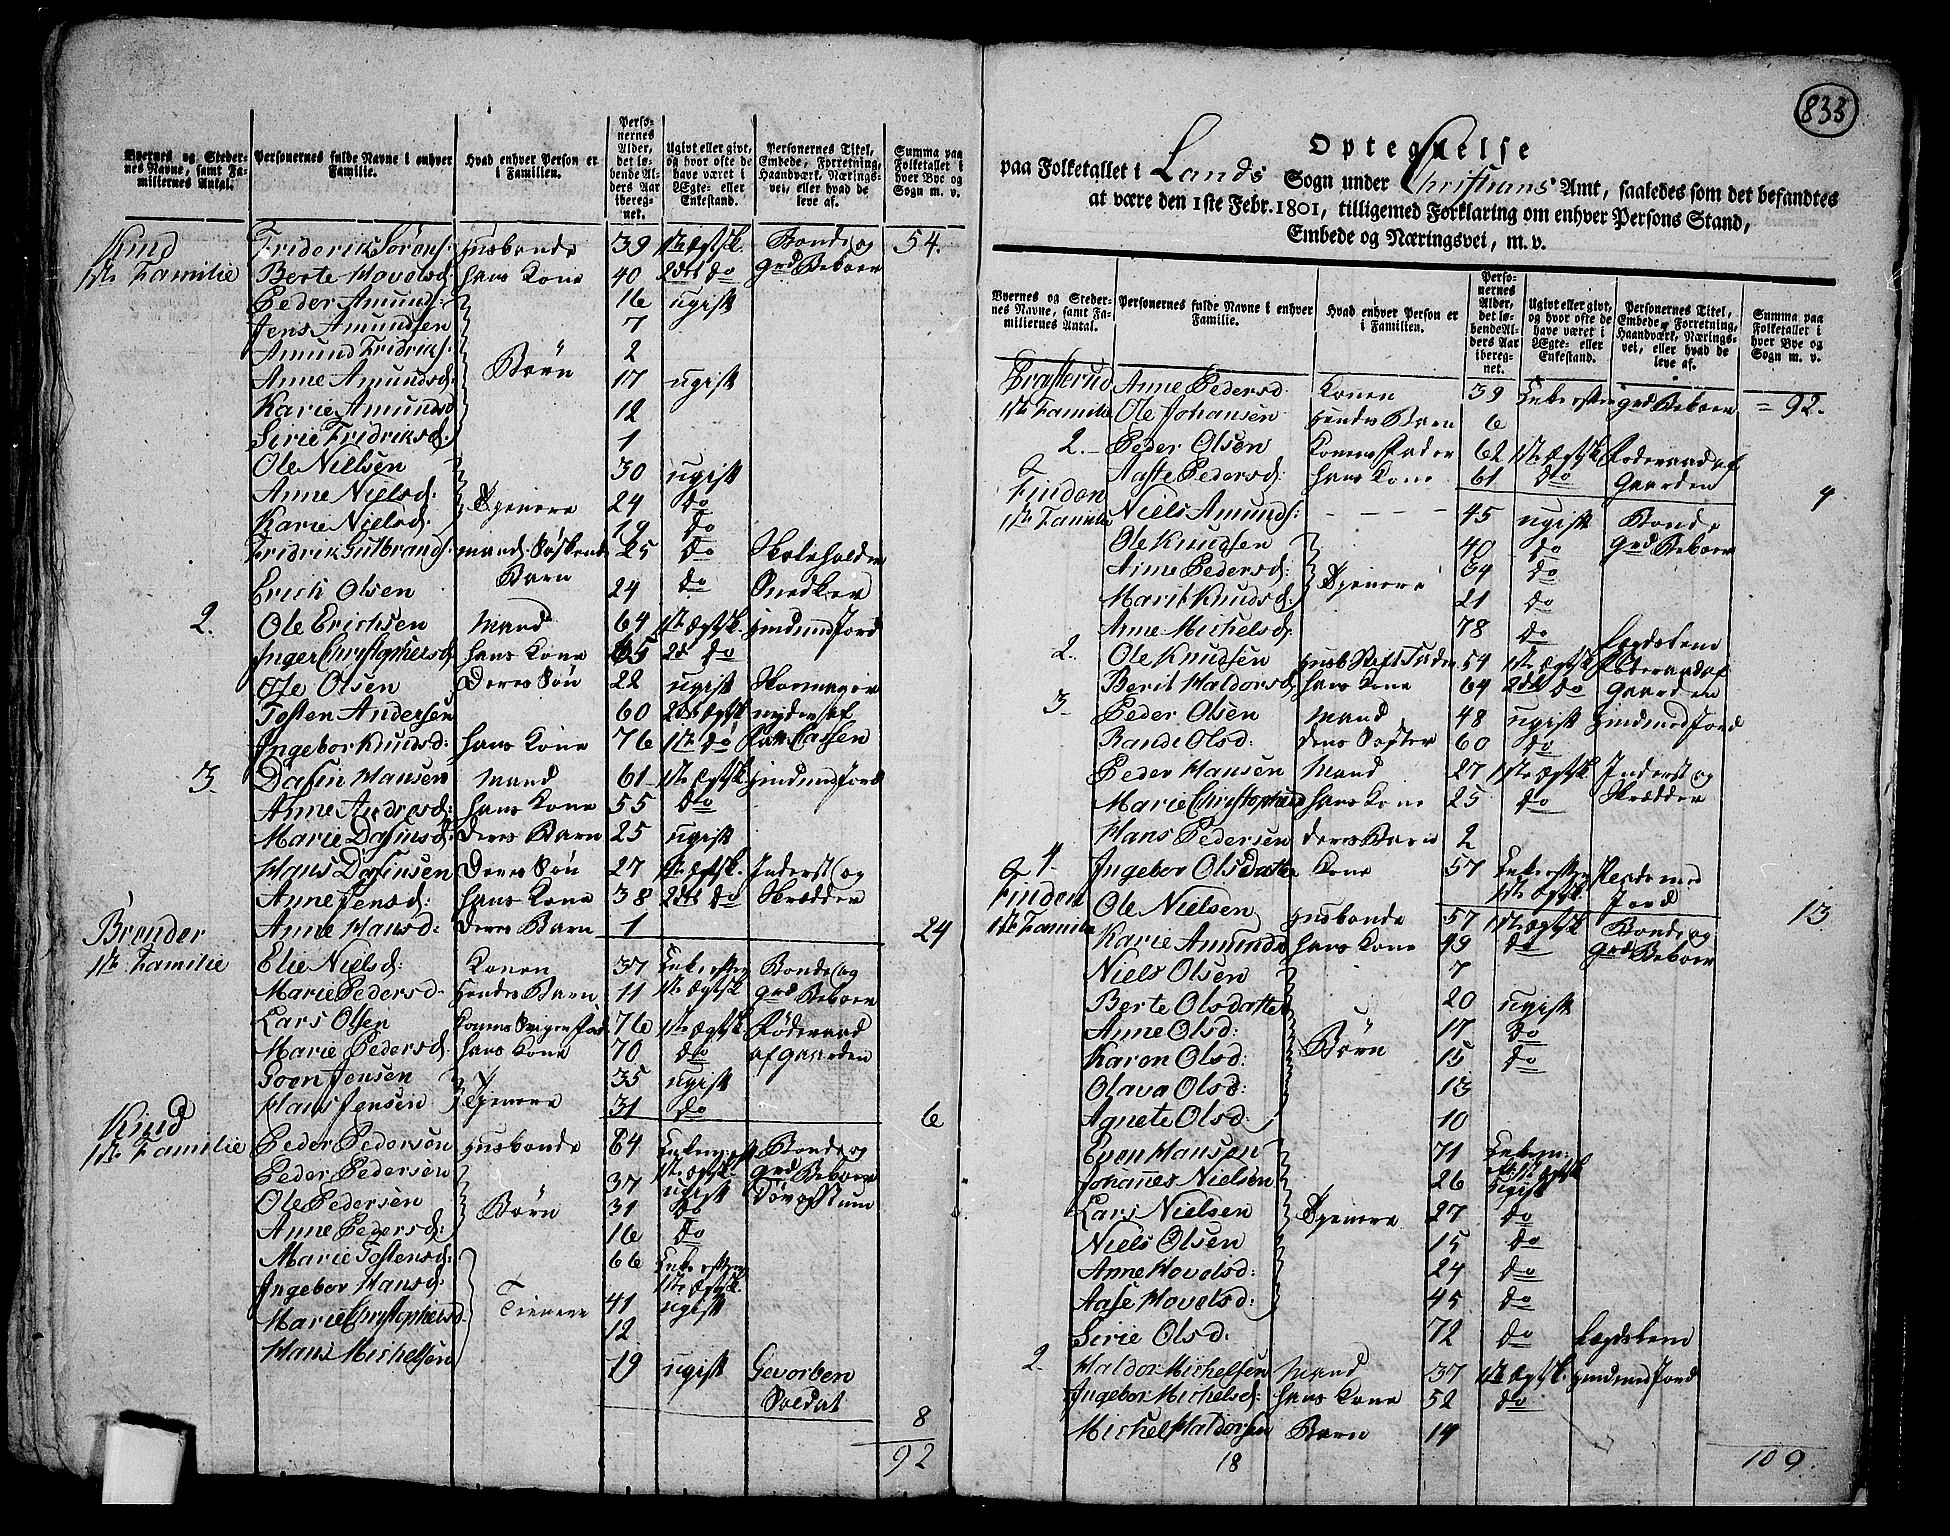 833
Byernes og Stedernes Navne, samt Familiernes Antal.
Personernes fulde Navne i enhver Familie.
Hvad enhver Person er i Familien.
Personernes Alder, det løbende Alders Aar iberegnet.
Ugivt eller givt, og hvor ofte de have været i Ægte- eller Enkestand.
Personernes Titel, Embede, Forretning, Haandværk, Næringsvei, eller hvad de leve af.
Summa paa Folketallet i hver Bye og Sogn m. v.
Kind Friderik Sørens: Husbonde 39 1ste Ægtsk. Bonde og 54.
1ste Familie Berte Hovelsd. hans Kone 40 2det do grd Beboer
Peder Amunds: 16 ugift
Jens Amundsen 7
Amund Fridriks: 2
Anne Amundsd: Børn 17 ugift
Karie Amundsd 12
Sirie Fridriksd: 1
Ole Nielsen 30 ugift
Anne Nielsd: Tjenere 24 do
Karie Nielsd: 19 do
Fridrik Gulbrands: mands Søskende 25 do Skoleholder
Erich Olsen Barn 24 do Snedker
2. Ole Erichsen Mand 64 1ste Ægtsk. Huusmd Jord
Inger Christophersd hans Kone 65 2d do
Ole Olsen Deres Søn 22 ugift Skomager
Tosten Andersen 60 2det Ægtsk. nyder af
Ingebor Knudsd: hans Kone 76 1ste do Cassen
3. Dafin Hansen Mand 61 1ste Ægtsk. Huusmd Jord
Anne Andresd: hans Kone 55 do
Marie Dafinsd: Deres Barn 25 ugift
Hans Dafinsen Deres Søn 27 1ste Ægtsk. Inderst og
Anne Jensd: hans Kone 38 2det do Skrædder
Anne Hansd: Deres Barn 1 24
Brender
1ste Familie Elie Nielsd: Konen 37 Enke efter Bonde og
Marie Pedersd. Hendes Barn 11 1ste Ægtsk grd Beboer
Lars Olsen Konens Sviger Fad. 76 1ste Ægtsk. Föderaad
Marie Pedersd. hans Kone 70 do af gaarden
Joen Jensen Tjenere 35 ugift
Hans Jensen 31 do 6
Kind
1ste Familie Peder Pedersen Husbonde 64 Enkem: eft 1ste Ægtsk. Bonde og grd Beboer
Peder Pedersen 37 ugift Döv og Stum
Ole Pedersen Börn 31 do
Anne Pedersd: 16 do
Marie Tostensd: 66 Enke efter 1ste Ægtsk.
Ingebor Hansd: 41 ugift
Marie Christophersd. Tienere 12
Hans Michelsen 19 ugift Gevorben Soldat
8
92
Optegnelse
paa Folketallet i Lands Sogn under Christians Amt, saaledes som det befandtes
at være den 1ste Febr. 1801, tilligemed Forklaring om enhver Persons Stand,
Embede og Næringsvei, m. v.
Byernes og Stedernes Navne, samt Familiernes Antal.
Personernes fulde Navne i enhver Familie.
Hvad enhver Person er i Familien.
Personernes Alder, det løbende Alders Aar iberegnet.
Ugivt eller givt, og hvor ofte de have været i Ægte- eller Enkestand.
Personernes Titel, Embede, Forretning, Haandværk, Næringsvei, eller hvad de leve af.
Summa paa Folketallet i hver Bye og Sogn m. v.
Anne Pedersd. Konen 39 Enke efter grd Beboer = 92.
1ste Familie Ole Johansen Hendes Barn 6
2. Peder Olsen Konens Fader 62 1ste Ægtsk Föderaad af
Aaste Pedersd: hans Kone 61 do Gaarden 4
Finden Niels Amunds: 45 ugift Bonde
1ste Familie Ole Knudsen 40 do grd Beboer
Anne Pedersd: Tjenere 34 do
Marit Knudsd: 21 do
Anne Michelsd: 78 do Lægdslem
2. Ole Knudsen Husb Stif Fader 54 1ste Ægtsk Föderaad af
Berit Haldorsd: hans Kone 64 2det do gaarden
3 Peder Olsen Mand 48 ugift Huusmd Jord
Rande Olsd: Dens Søster 60 do
Peder Hansen Mand 27 1ste Ægtsk. Inderst og
Marie Christophersd hans Kone 25 do Skrædder
Hans Pedersen deres Barn 2
4. Ingebor Olsdatter Kone 57 Enke efter 1ste Ægtsk. Jord 13.
Finden
1ste Familie Ole Nielsen Husbonde 57 1ste Ægtsk Bonde og
Karie Amundsd hans Kone 49 do grd Beboer
Niels Olsen 7
Berte Olsdatter 20 ugift
Anne Olsd: 17 do
Karen Olsd: Börn 15 do
Olava Olsd: 13
Agnete Olsd: 10
Even Hansen 71 Enkem: eft 1ste Ægtsk
Johannes Nielsen 26 ugift
Lars Nielsen Tjenere 27 do
Niels Olsen 15 do
Anne Hovelsd: 24 do
Aase Hovelsd: 45 do
Sirie Olsd: 72 do Lægdslem
2. Haldor Michelsen Mand 37 1ste Ægtsk. Huusmd Jord
Ingebor Michelsd: hans Kone 52 do
Michel Haldorsen Barn 14
18 109.